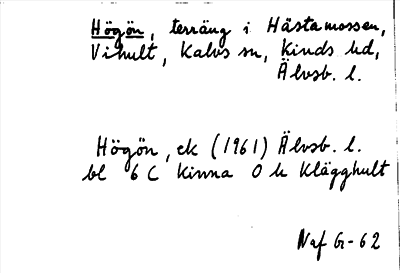 Högön, terräng i Hästamossen,
Vihult, Kalvs sn, Kinds hd,
Älvsb. l.
Högön, ek (1961) Älvsb. l.
bl 6 C Kinna O h Klägghult
Naf G-62